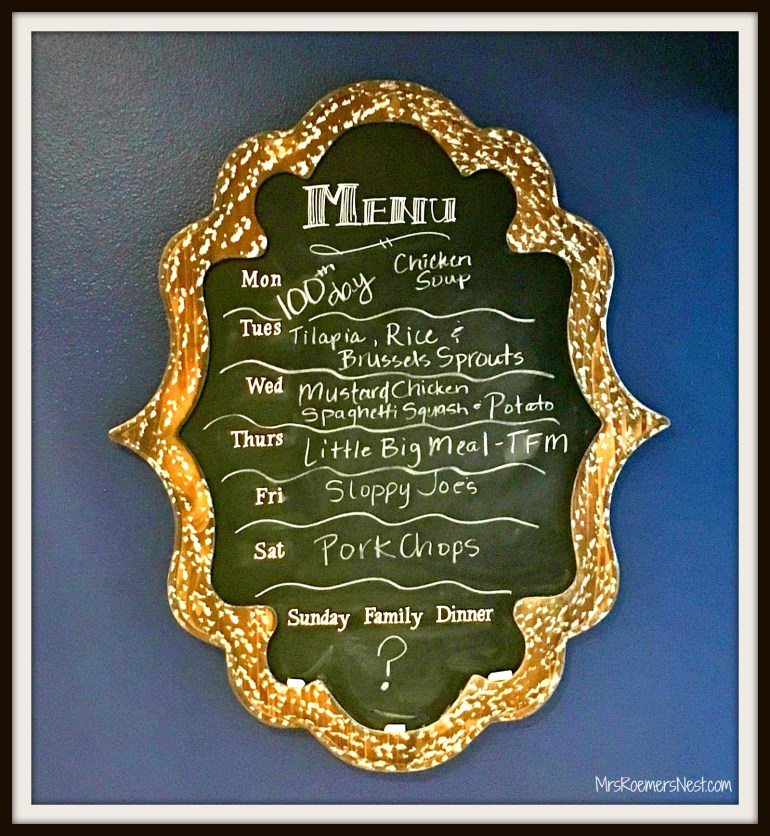 MENU
Mon 100th day Chicken
Soup
Tues Tilapia, Rice &
Brussels Sprouts
Wed Mustard Chicken
Spaghetti Squash & Potato
Thurs Little Big Meal - TFM
Fri Sloppy Joe's
Sat Pork Chops
Sunday Family Dinner
?
MrsRoemersNest.com